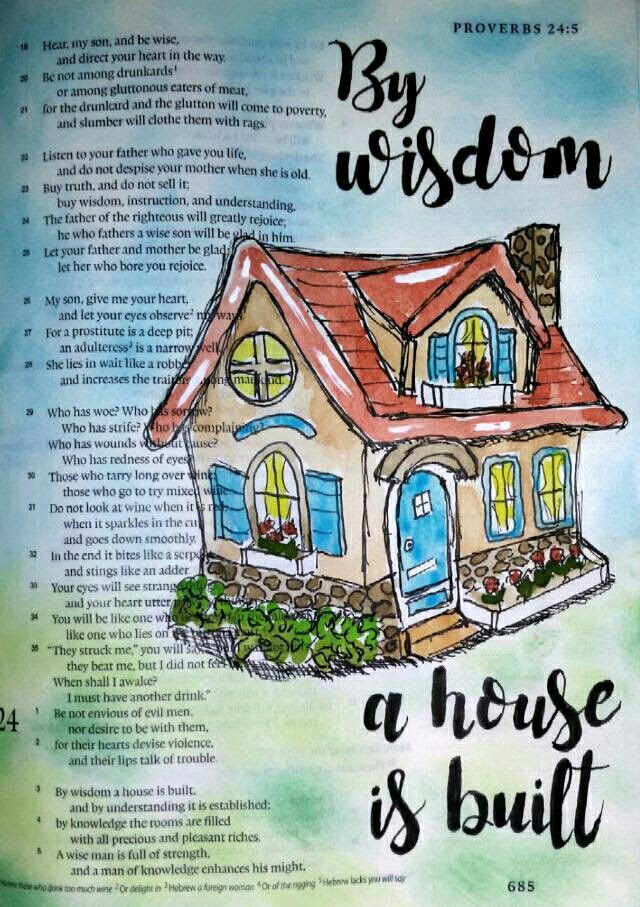 PROVERBS 24:5
By
wisdom
19 Hear, my son, and be wise,
and direct your heart in the way.
20 Be not among drunkards¹
or among gluttonous eaters of meat,
21 for the drunkard and the glutton will come to poverty,
and slumber will clothe them with rags.
22 Listen to your father who gave you life,
and do not despise your mother when she is old.
23 Buy truth, and do not sell it;
buy wisdom, instruction, and understanding.
24 The father of the righteous will greatly rejoice;
he who fathers a wise son will be glad in him.
25 Let your father and mother be glad;
let her who bore you rejoice.
26 My son, give me your heart,
and let your eyes observe² my ways.
27 For a prostitute is a deep pit;
an adulteress³ is a narrow well.
28 She lies in wait like a robber
and increases the traitors among mankind.
29 Who has woe? Who has sorrow?
Who has strife? Who has complaining?
Who has wounds without cause?
Who has redness of eyes?
30 Those who tarry long over wine;
those who go to try mixed wine.
31 Do not look at wine when it is red,
when it sparkles in the cup
and goes down smoothly.
32 In the end it bites like a serpent
and stings like an adder.
33 Your eyes will see strange
and your heart utter
34 You will be like one who
like one who lies on
35 “They struck me,” you will say,
they beat me, but I did not feel
When shall I awake?
I must have another drink.”
24
1 Be not envious of evil men,
nor desire to be with them,
2 for their hearts devise violence,
and their lips talk of trouble.
3 By wisdom a house is built,
and by understanding it is established;
4 by knowledge the rooms are filled
with all precious and pleasant riches.
5 A wise man is full of strength,
and a man of knowledge enhances his might,
those who drink too much wine ² Or delight in ³ Hebrew a foreign woman ⁴ Or of the rigging ⁵ Hebrew lacks you will say
a house
is built
685